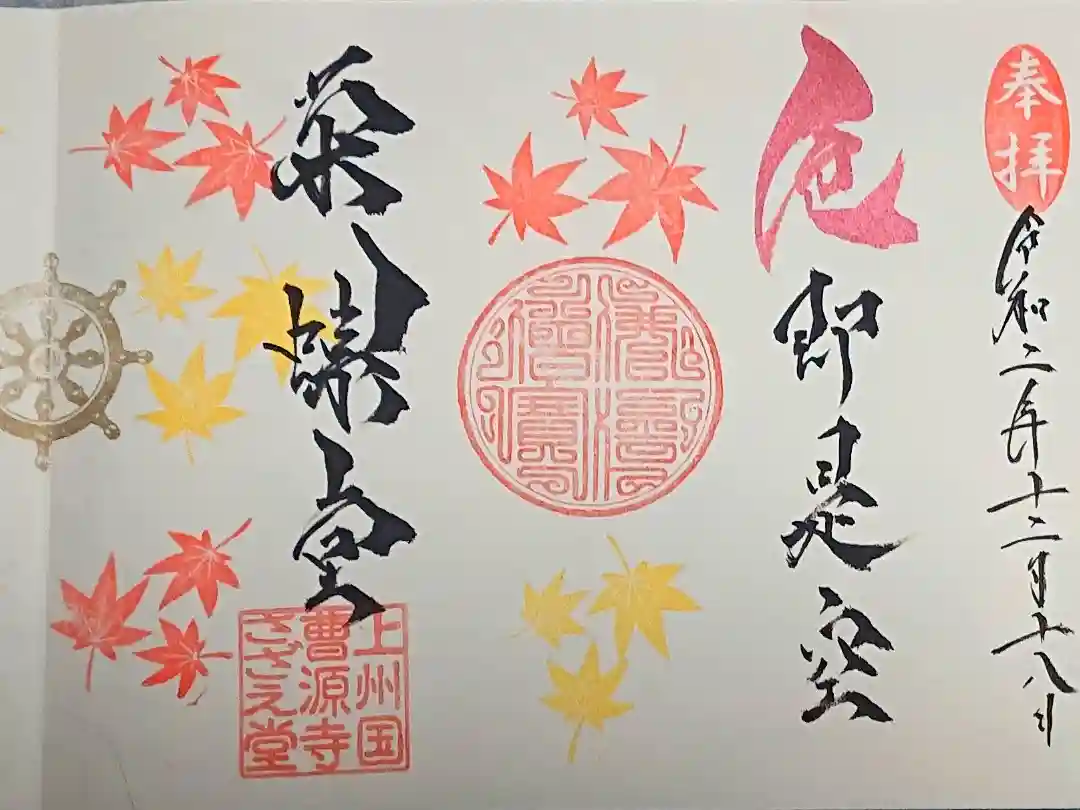 奉拝
令和二年十二月十八日
色即是空
栄螺堂
上州国
曹源寺
さざえ堂